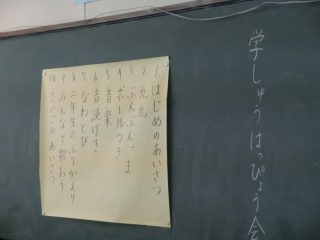 学しゅうはっぴょう会
1 はじめのあいさつ
2 九九
3 ぶんぶんごま
4 ボールつき
5 音楽
6 音読げき
7 なわとび
8 二年生のふりかえり
9 みんなで歌おう
10 おわりのあいさつ